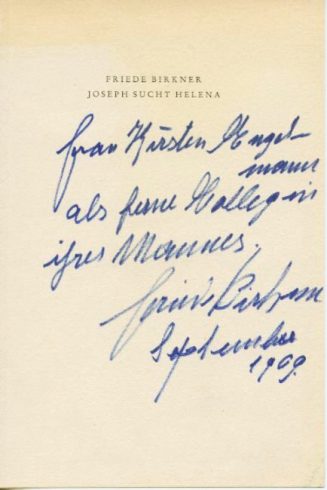 FRIEDE BIRKNER
JOSEPH SUCHT HELENA
Frau Kirsten Engel-
mann
als ferne Kollegin
ihres Mannes,
Friede Birkner
September
1969.